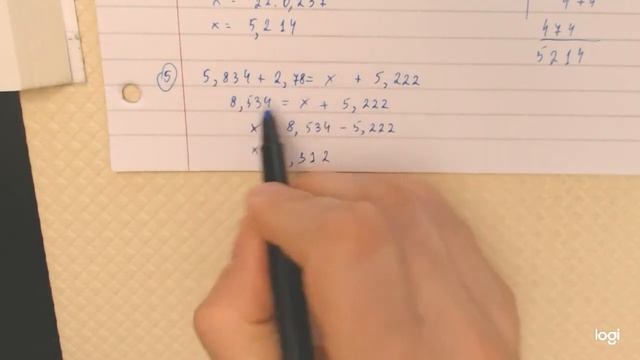 x = 5,214
474
5214
5 5,834 + 2,78 = x + 5,222
8,534 = x + 5,222
x 8,534 - 5,222
x ,312
logi